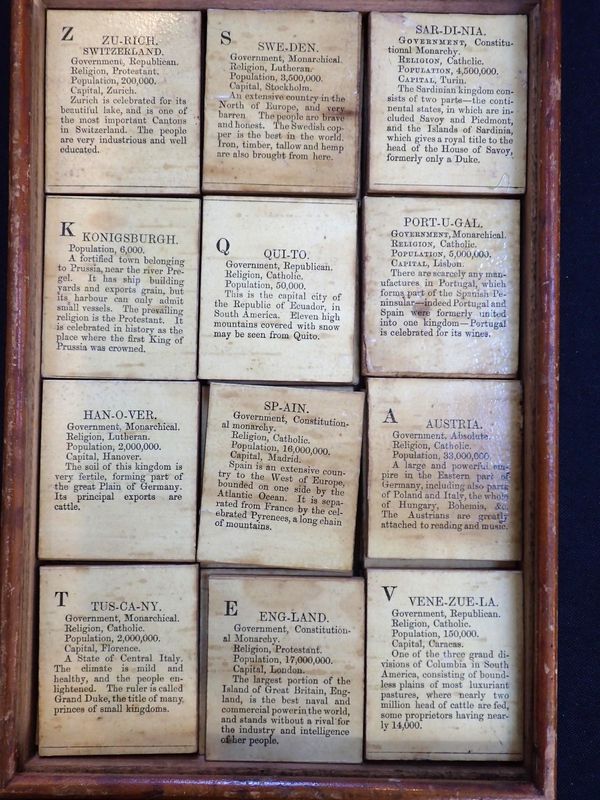 Z
ZU-RICH.
SWITZERLAND.
Government, Republican.
Religion, Protestant.
Population, 200,000.
Capital, Zurich.
Zurich is celebrated for its
beautiful lake, and is one of
the most important Cantons
in Switzerland. The people
are very industrious and well
educated.
S
SWE-DEN.
Government, Monarchical.
Religion, Lutheran.
Population, 3,500,000.
Capital, Stockholm.
An extensive country in the
North of Europe, and very
barren The people are brave
and honest. The Swedish cop-
per is the best in the world.
Iron, timber, tallow and hemp
are also brought from here.
SAR-DI-NIA.
GOVERNMENT, Constitu-
tional Monarchy.
RELIGION, Catholic.
POPULATION, 4,500,000.
CAPITAL, Turin.
The Sardinian kingdom con-
sists of two parts—the conti-
nental states, in which are in-
cluded Savoy and Piedmont,
and the Islands of Sardinia,
which gives a royal title to the
head of the House of Savoy,
formerly only a Duke.
K
KONIGSBURGH.
Population, 6,000.
A fortified town belonging
to Prussia, near the river Pre-
gel. It has ship building
yards and exports grain, but
its harbour can only admit
small vessels. The prevailing
religion is the Protestant. It
is celebrated in history as the
place where the first King of
Prussia was crowned.
Q
QUI-TO.
Government, Republican.
Religion, Catholic.
Population, 50,000.
This is the capital city of
the Republic of Ecuador, in
South America. Eleven high
mountains covered with snow
may be seen from Quito.
PORT-U-GAL.
GOVERNMENT, Monarchical.
RELIGION, Catholic.
POPULATION, 5,000,000.
CAPITAL, Lisbon.
There are scarcely any man-
ufactures in Portugal, which
forms part of the Spanish Pe-
ninsular—indeed Portugal and
Spain were formerly united
into one kingdom—Portugal
is celebrated for its wines.
HAN-O-VER.
Government, Monarchical.
Religion, Lutheran.
Population, 2,000,000.
Capital, Hanover.
The soil of this kingdom is
very fertile, forming part of
the great Plain of Germany.
Its principal exports are
cattle.
SP-AIN.
Government, Constitution-
al monarchy.
Religion, Catholic.
Population, 16,000,000.
Capital, Madrid.
Spain is an extensive coun-
try to the West of Europe,
bounded on one side by the
Atlantic Ocean. It is sepa-
rated from France by the cel-
ebrated Pyrenees, a long chain
of mountains.
A
AUSTRIA.
Government, Absolute.
Religion, Catholic.
Population, 33,000,000.
A large and powerful em-
pire in the Eastern part of
Germany, including also parts
of Poland and Italy, the whole
of Hungary, Bohemia, &c.
The Austrians are greatly
attached to reading and music.
T
TUS-CA-NY.
Government, Monarchical.
Religion, Catholic.
Population, 2,000,000.
Capital, Florence.
A State of Central Italy.
The climate is mild and
healthy, and the people en-
lightened. The ruler is called
Grand Duke, the title of many
princes of small kingdoms.
E
ENG-LAND.
Government, Constitution-
al Monarchy.
Religion, Protestant.
Population, 17,000,000.
Capital, London.
The largest portion of the
Island of Great Britain, Eng-
land, is the best naval and
commercial power in the world,
and stands without a rival for
the industry and intelligence
of her people.
V
VENE-ZUE-LA.
Government, Republican.
Religion, Catholic.
Population, 150,000.
Capital, Caracas.
One of the three grand di-
visions of Columbia in South
America, consisting of bound-
less plains of most luxuriant
pastures, where nearly two
million head of cattle are fed,
some proprietors having near-
ly 14,000.